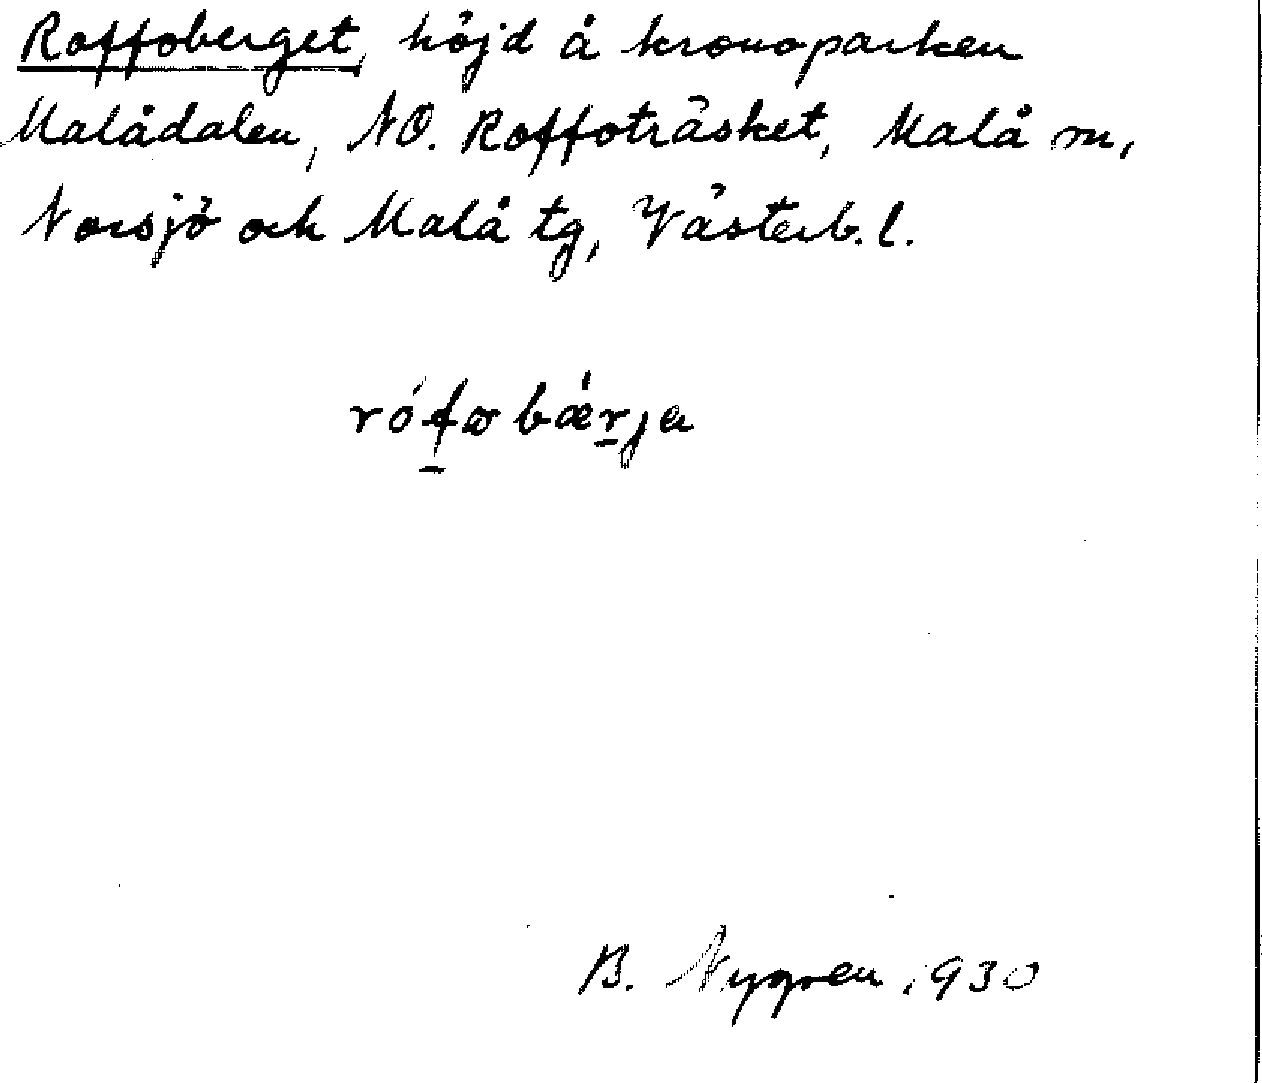 Roffoberget, höjd å kronoparken
Malådalen, NO. Roffoträsket, Malå sn,
Norsjö och Malå tg, Västerb. l.
rófo bǽrja
B. Nygren, 1930